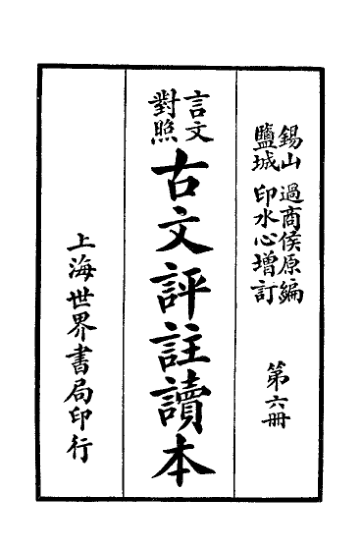 錫山 過商侯原編
鹽城 印水心增訂
第六冊
言文
對照
古文評註讀本
上海世界書局印行